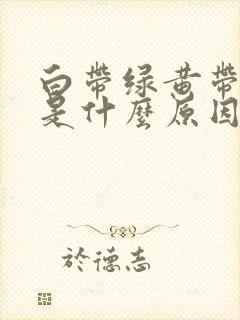 白带绿黄带
是什麼原因
於德志